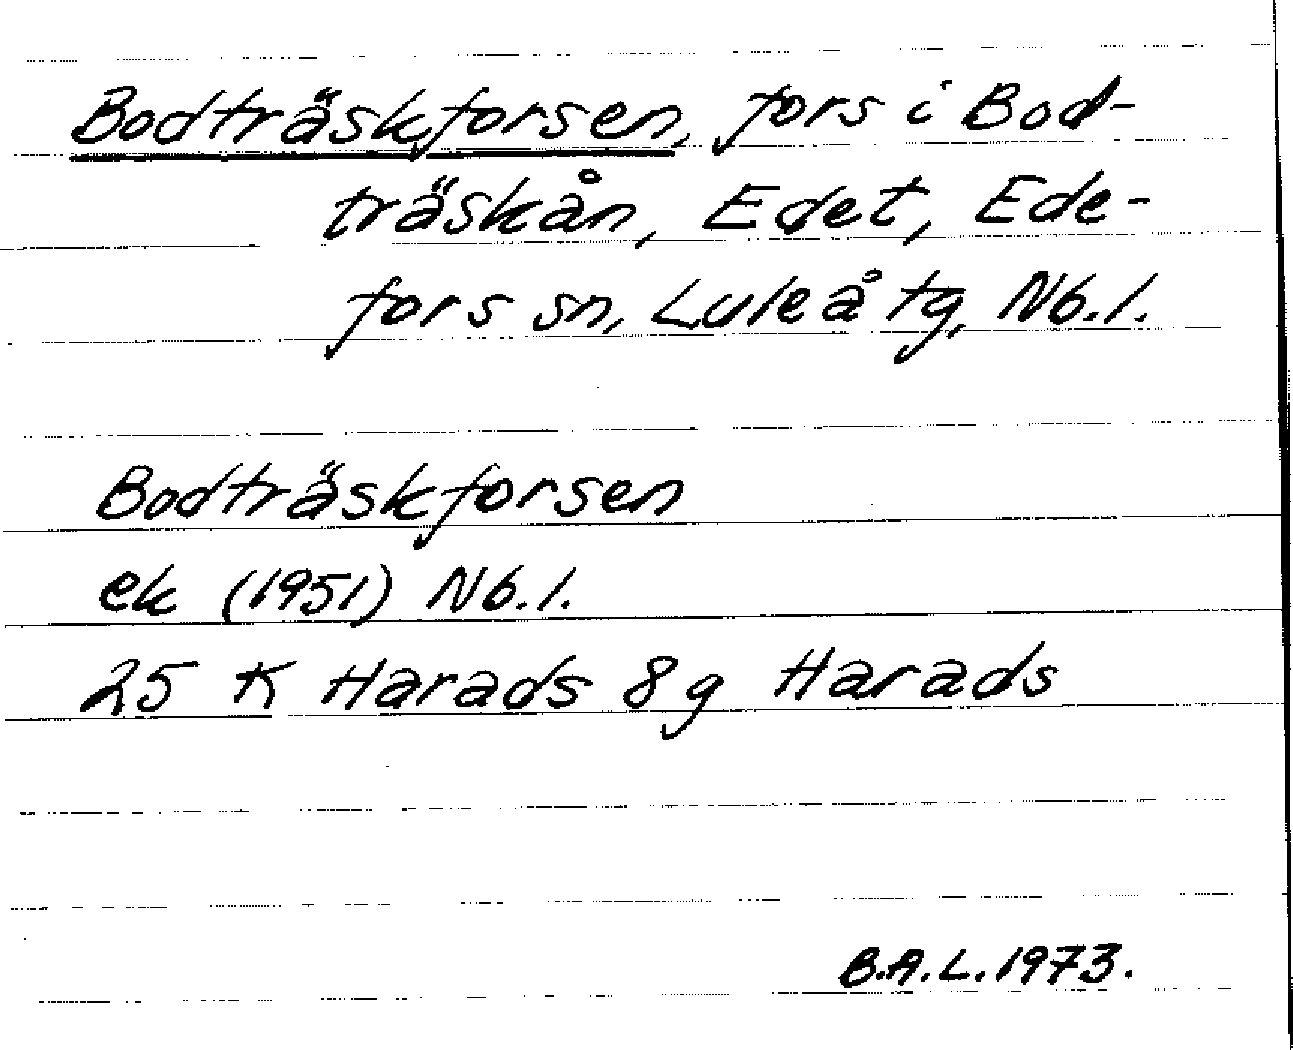 Bodträskforsen, fors i Bod-
träskån, Edet, Ede-
fors sn, Luleå tg, Nb.l.
Bodträskforsen
ek (1951) Nb.l.
25 K Harads 8g Harads
B.A.L. 1973.